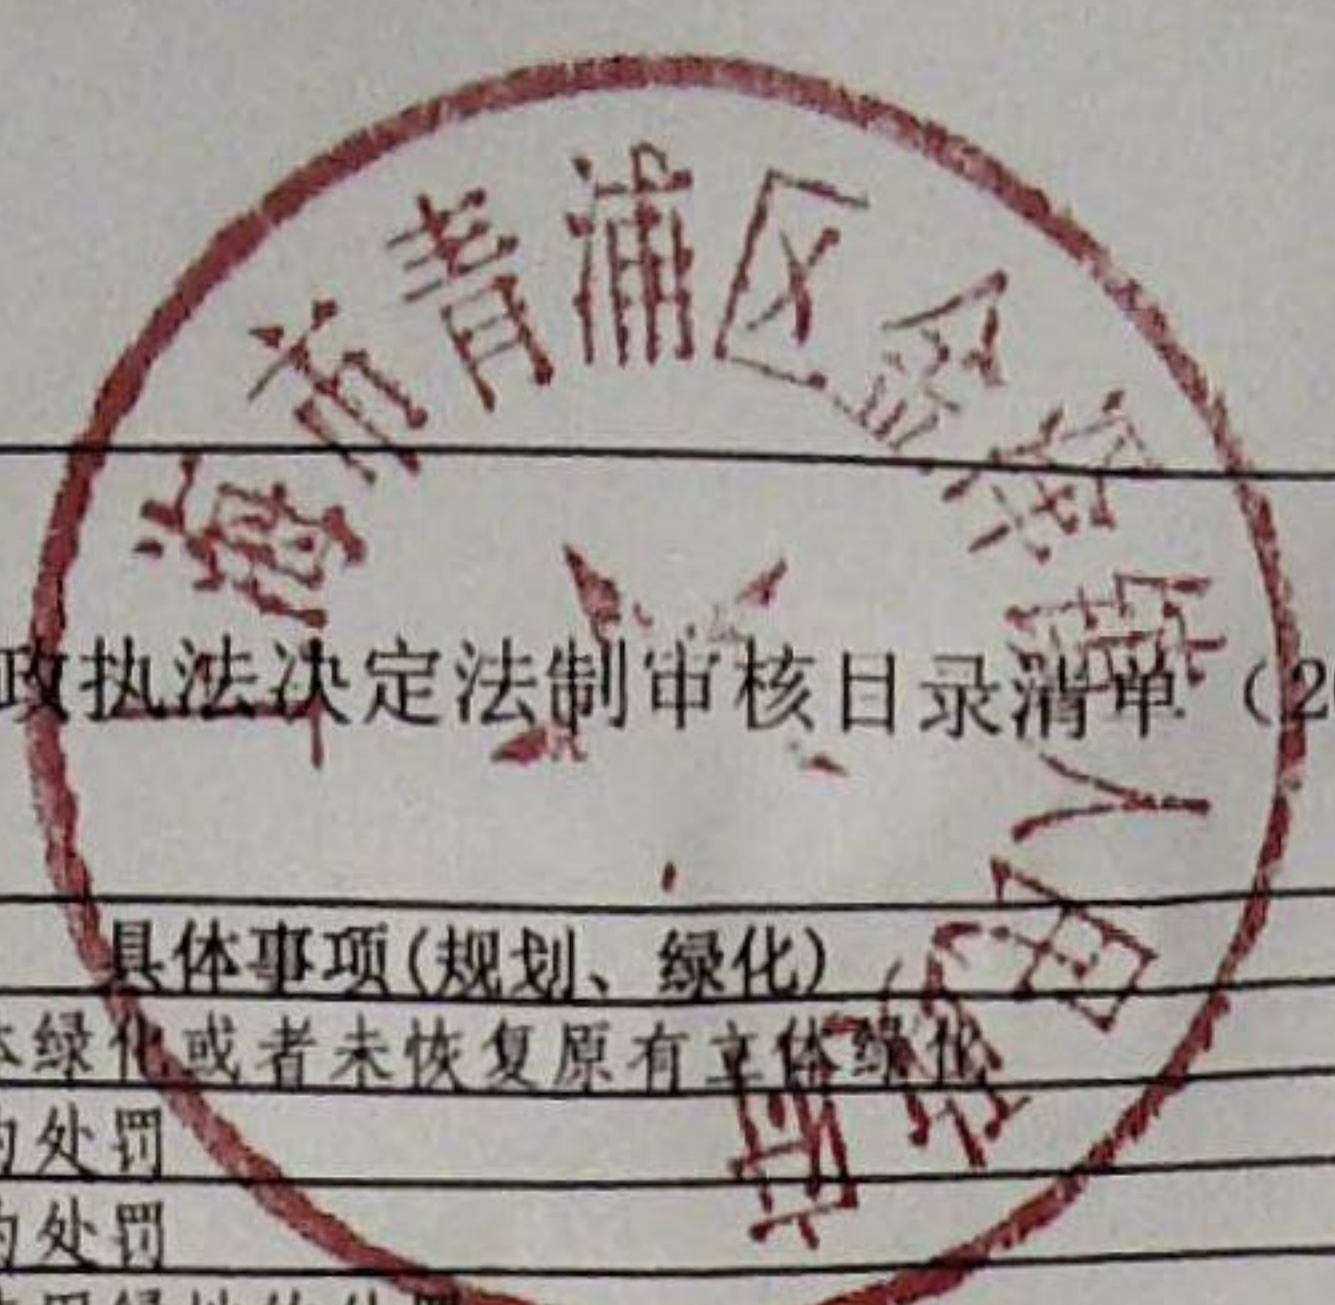 上海市青浦区金泽镇人民政府
政执法决定法制审核目录清单（2
具体事项(规划、绿化)
体绿化或者未恢复原有立体绿化
的处罚
的处罚